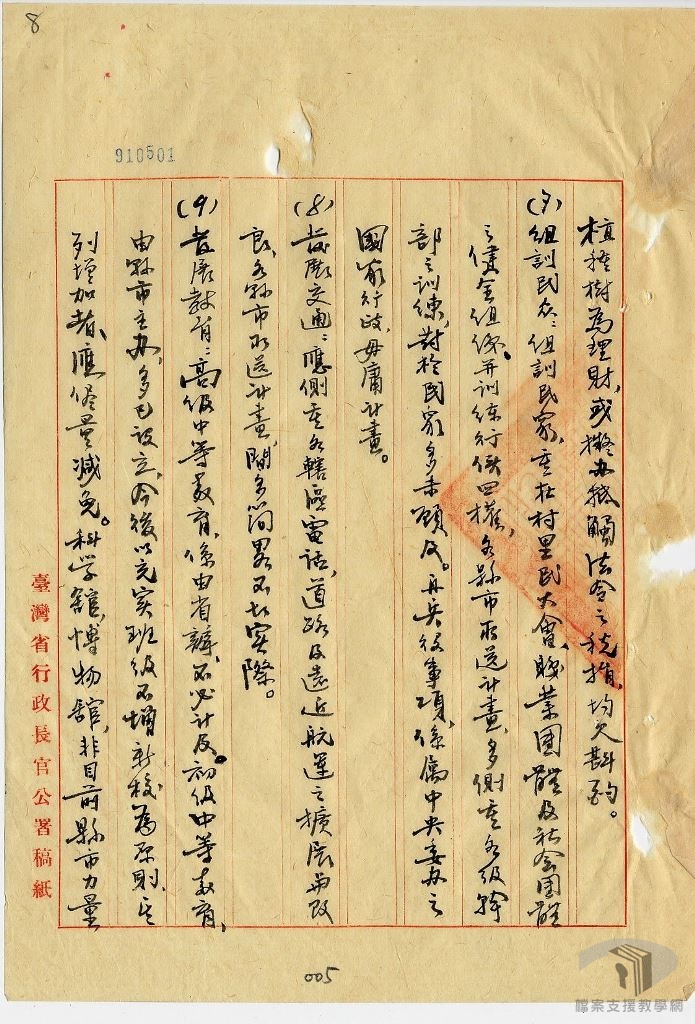 8
910501
植種樹為理財,或擬办抵觸法令之稅捐,均欠斟酌。
(7)組訓民众:組訓民眾,重在村里民大會,職業團體及社會團體
之健全組織。并訓練行使四權,各縣市所送計畫,多側重各級幹
部之訓練,對於民眾多未顧及。再兵役事項,係屬中央委办之
國家行政,毋庸計畫。
(8)發展交通:應側重各轄區電話,道路及遠近航運之擴展与改
良,各縣市所送計畫,間多簡畧不切實際。
(9)發展教育:高級中等教育,係由省辦,不必計及。初級中等教育,
由縣市主办,多已設立,今後以充实班級不增新校為原則,其
列增加者,應侭量减免。科学舘,博物舘,非目前縣市力量
臺灣省行政長官公署稿紙
005
檔案支援教學網